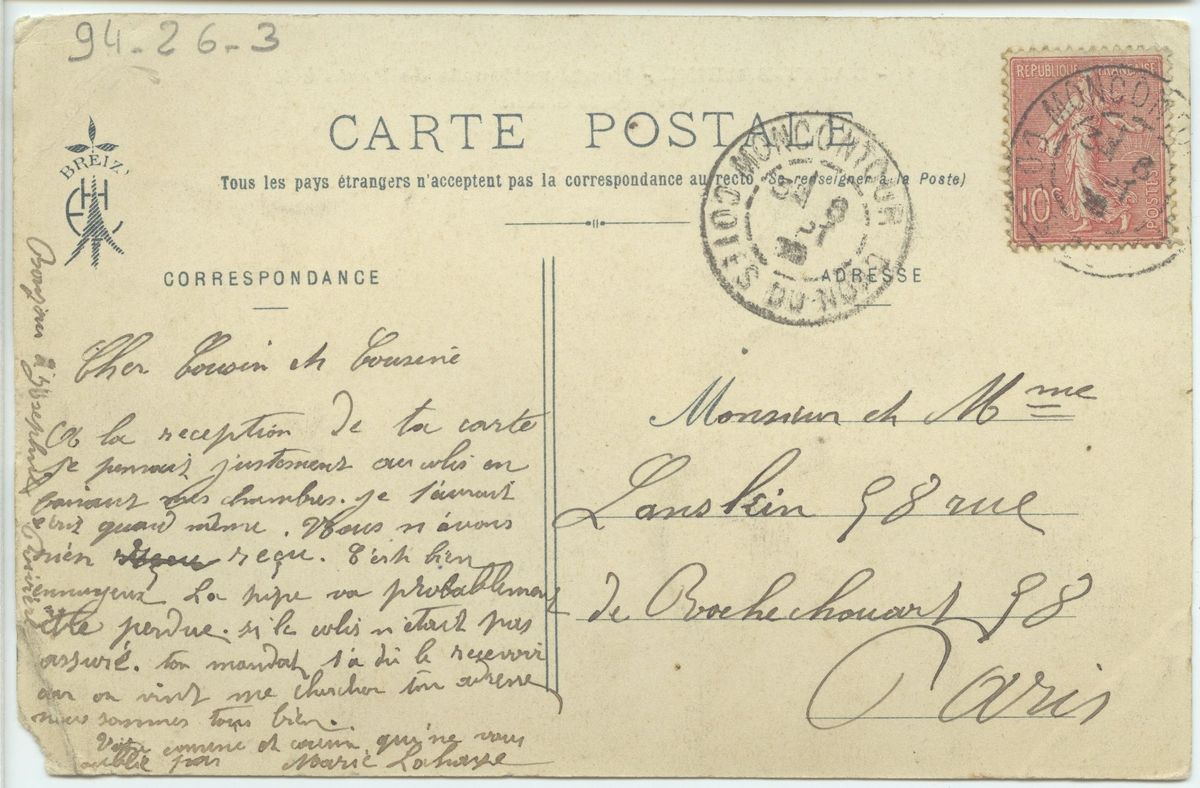 94-26-3
CARTE POSTALE
Tous les pays étrangers n'acceptent pas la correspondance au recto (Se renseigner à la Poste)
BREIZ
EHC
REPUBLIQUE FRANÇAISE
10c
POSTES
MONCONTOUR
COTES DU NORD
MONCONTO
CORRESPONDANCE
ADRESSE
Cher Cousin et Cousine
A la reception de ta carte
je pensait justement au colis en
faisant mes chambres. je t'aurait
écrit quand même. Nous n'avons
rien reçu. C'est bien
ennuyeux La pipe va probablement
être perdue. si le colis n'était pas
assuré. ton mandat t'a dû le recevoir
car on vint me chercher ton adresse
nous sommes tous bien.
Votre cousine et cousin qui ne vous
oublie pas Marie Lahaye
Bonjour à Josephine
Monsieur et Mme
Lanskin 98 rue
de Rochechouart 98
Paris